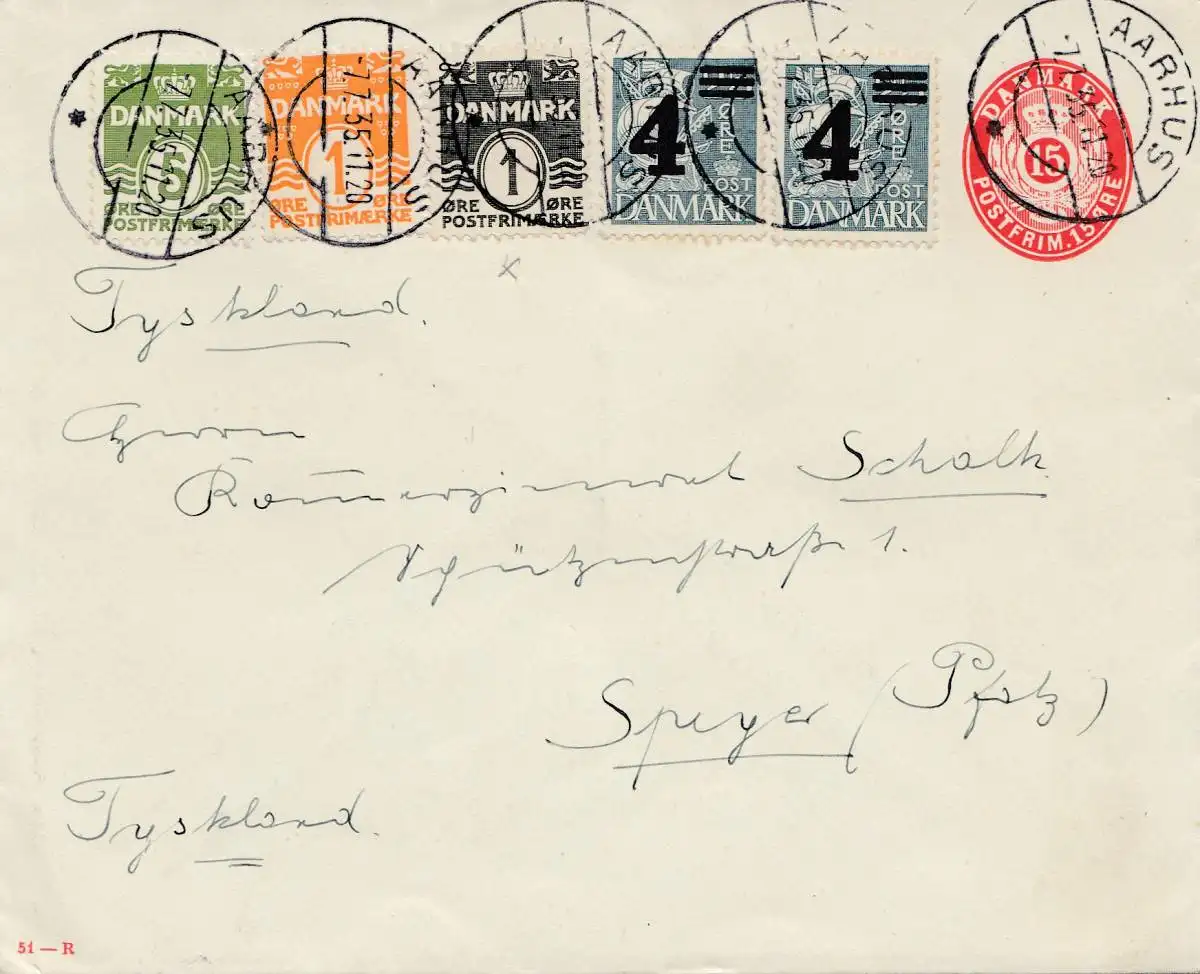 DANMARK 5 ØRE ØRE POSTFRIMÆRKE
DANMARK 1 ØRE ØRE POSTFRIMÆRKE
DANMARK 1 ØRE ØRE POSTFRIMÆRKE
4 POST DANMARK
4 ØRE POST DANMARK
DANMARK 15 POSTFRIM. 15 ØRE
AARHUS
-7.7.35.11.20
AARHUS
-7.7.35.11.20
AARHUS
AARHUS
AARHUS
x
Tyskland.
Herrn
Kom̄erzienrat Schalk
Schützenstraße 1.
Speyer (Pfalz)
Tyskland.
51 — R